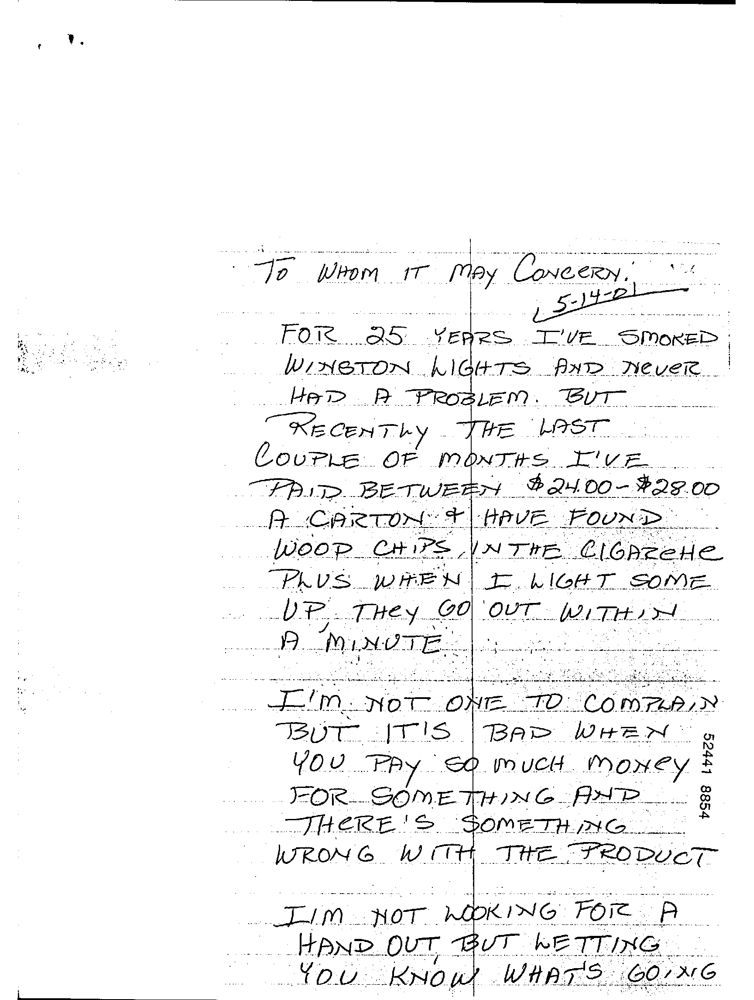 To WHOM IT MAY CONCERN:
5-14-01
FOR 25 YEARS I'VE SMOKED
WINSTON LIGHTS AND NEVER
HAD A PROBLEM. BUT
RECENTLY THE LAST
COUPLE OF MONTHS I'VE
PAID BETWEEN $24.00-$28.00
A CARTON & HAVE FOUND
WOOD CHIPS, IN THE CIGARETTE
PLUS WHEN I LIGHT SOME
UP, THEY GO OUT WITHIN
A MINUTE
I'M NOT ONE TO COMPLAIN
BUT IT'S BAD WHEN
YOU PAY SO MUCH MONEY
FOR SOMETHING AND
THERE'S SOMETHING
WRONG WITH THE PRODUCT
I'M NOT LOOKING FOR A
HAND OUT, BUT LETTING
YOU KNOW WHAT'S GOING
52441 8854